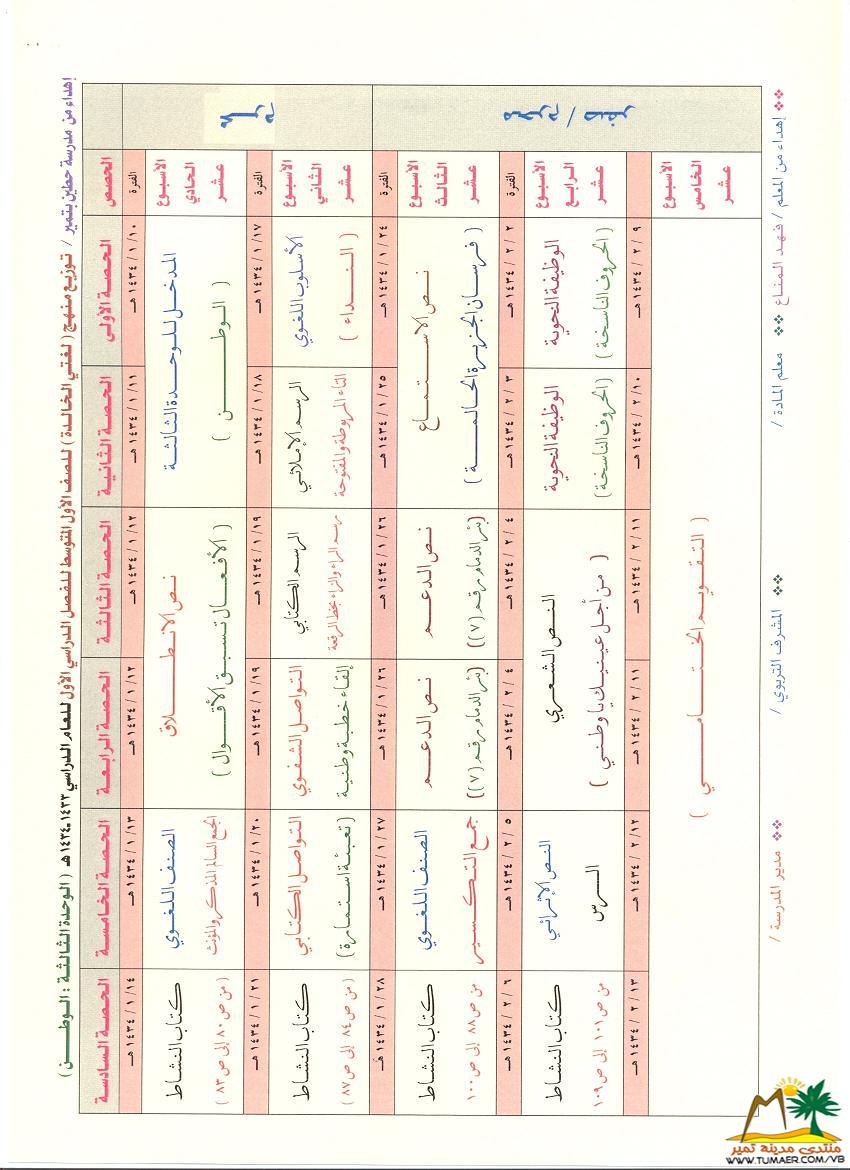 إهداء من مدرسة حطين بتمير / توزيع منهج ( لغتي الخالدة ) للصف الأول المتوسط للفصل الدراسي الأول للعام الدراسي ١٤٣٣-١٤٣٤ هـ ( الوحدة الثالثة : الوطن )
الحصص الحصة الأولى الحصة الثانية الحصة الثالثة الحصة الرابعة الحصة الخامسة الحصة السادسة
الفترة ١٠ / ١ / ١٤٣٤ هـ ١١ / ١ / ١٤٣٤ هـ ١٢ / ١ / ١٤٣٤ هـ ١٢ / ١ / ١٤٣٤ هـ ١٣ / ١ / ١٤٣٤ هـ ١٤ / ١ / ١٤٣٤ هـ
الأسبوع الحادي عشر
المدخل للوحدة الثالثة
( الوطن )
نص الانطلاق
( الأفعال تسبق الأقوال )
الصنف اللغوي
الجمع السالم المذكر والمؤنث
كتاب النشاط
( من ص ٨٠ إلى ص ٨٣ )
الفترة ١٧ / ١ / ١٤٣٤ هـ ١٨ / ١ / ١٤٣٤ هـ ١٩ / ١ / ١٤٣٤ هـ ١٩ / ١ / ١٤٣٤ هـ ٢٠ / ١ / ١٤٣٤ هـ ٢١ / ١ / ١٤٣٤ هـ
الأسبوع الثاني عشر
الأسلوب اللغوي
( النداء )
الرسم الإملائي
التاء المربوطة والمفتوحة
الرسم الكتابي
رسم الراء والزاء بخط الرقعة
التواصل الشفوي
إلقاء خطبة وطنية
التواصل الكتابي
( تعبئة استمارة )
كتاب النشاط
( من ص ٨٤ إلى ص ٨٧ )
محرم / صفر
الفترة ٢٤ / ١ / ١٤٣٤ هـ ٢٥ / ١ / ١٤٣٤ هـ ٢٦ / ١ / ١٤٣٤ هـ ٢٦ / ١ / ١٤٣٤ هـ ٢٧ / ١ / ١٤٣٤ هـ ٢٨ / ١ / ١٤٣٤ هـ
الأسبوع الثالث عشر
نص الاستماع
( فرسان الجزيرة الحالمة )
نص الدعم
(بئر الدمام رقم (٧))
نص الدعم
(بئر الدمام رقم (٧))
الصنف اللغوي
جمع التكسير
كتاب النشاط
من ص ٨٨ إلى ص ١٠٠
الفترة ٢ / ٢ / ١٤٣٤ هـ ٣ / ٢ / ١٤٣٤ هـ ٤ / ٢ / ١٤٣٤ هـ ٤ / ٢ / ١٤٣٤ هـ ٥ / ٢ / ١٤٣٤ هـ ٦ / ٢ / ١٤٣٤ هـ
الأسبوع الرابع عشر
الوظيفة النحوية
( الحروف الناسخة )
الوظيفة النحوية
( الحروف الناسخة )
النص الشعري
( من أجل عينيك يا وطني )
النص الإثرائي
كتاب النشاط
من ص ١٠١ إلى ص ١٠٩
٩ / ٢ / ١٤٣٤ هـ ١٠ / ٢ / ١٤٣٤ هـ ١١ / ٢ / ١٤٣٤ هـ ١١ / ٢ / ١٤٣٤ هـ ١٢ / ٢ / ١٤٣٤ هـ ١٣ / ٢ / ١٤٣٤ هـ
الأسبوع الخامس عشر
( التقويم الختامي )
إهداء من المعلم / فهد المناع معلم المادة / المشرف التربوي / مدير المدرسة /
منتدى مدينة تمير
WWW.TUMAER.COM/VB